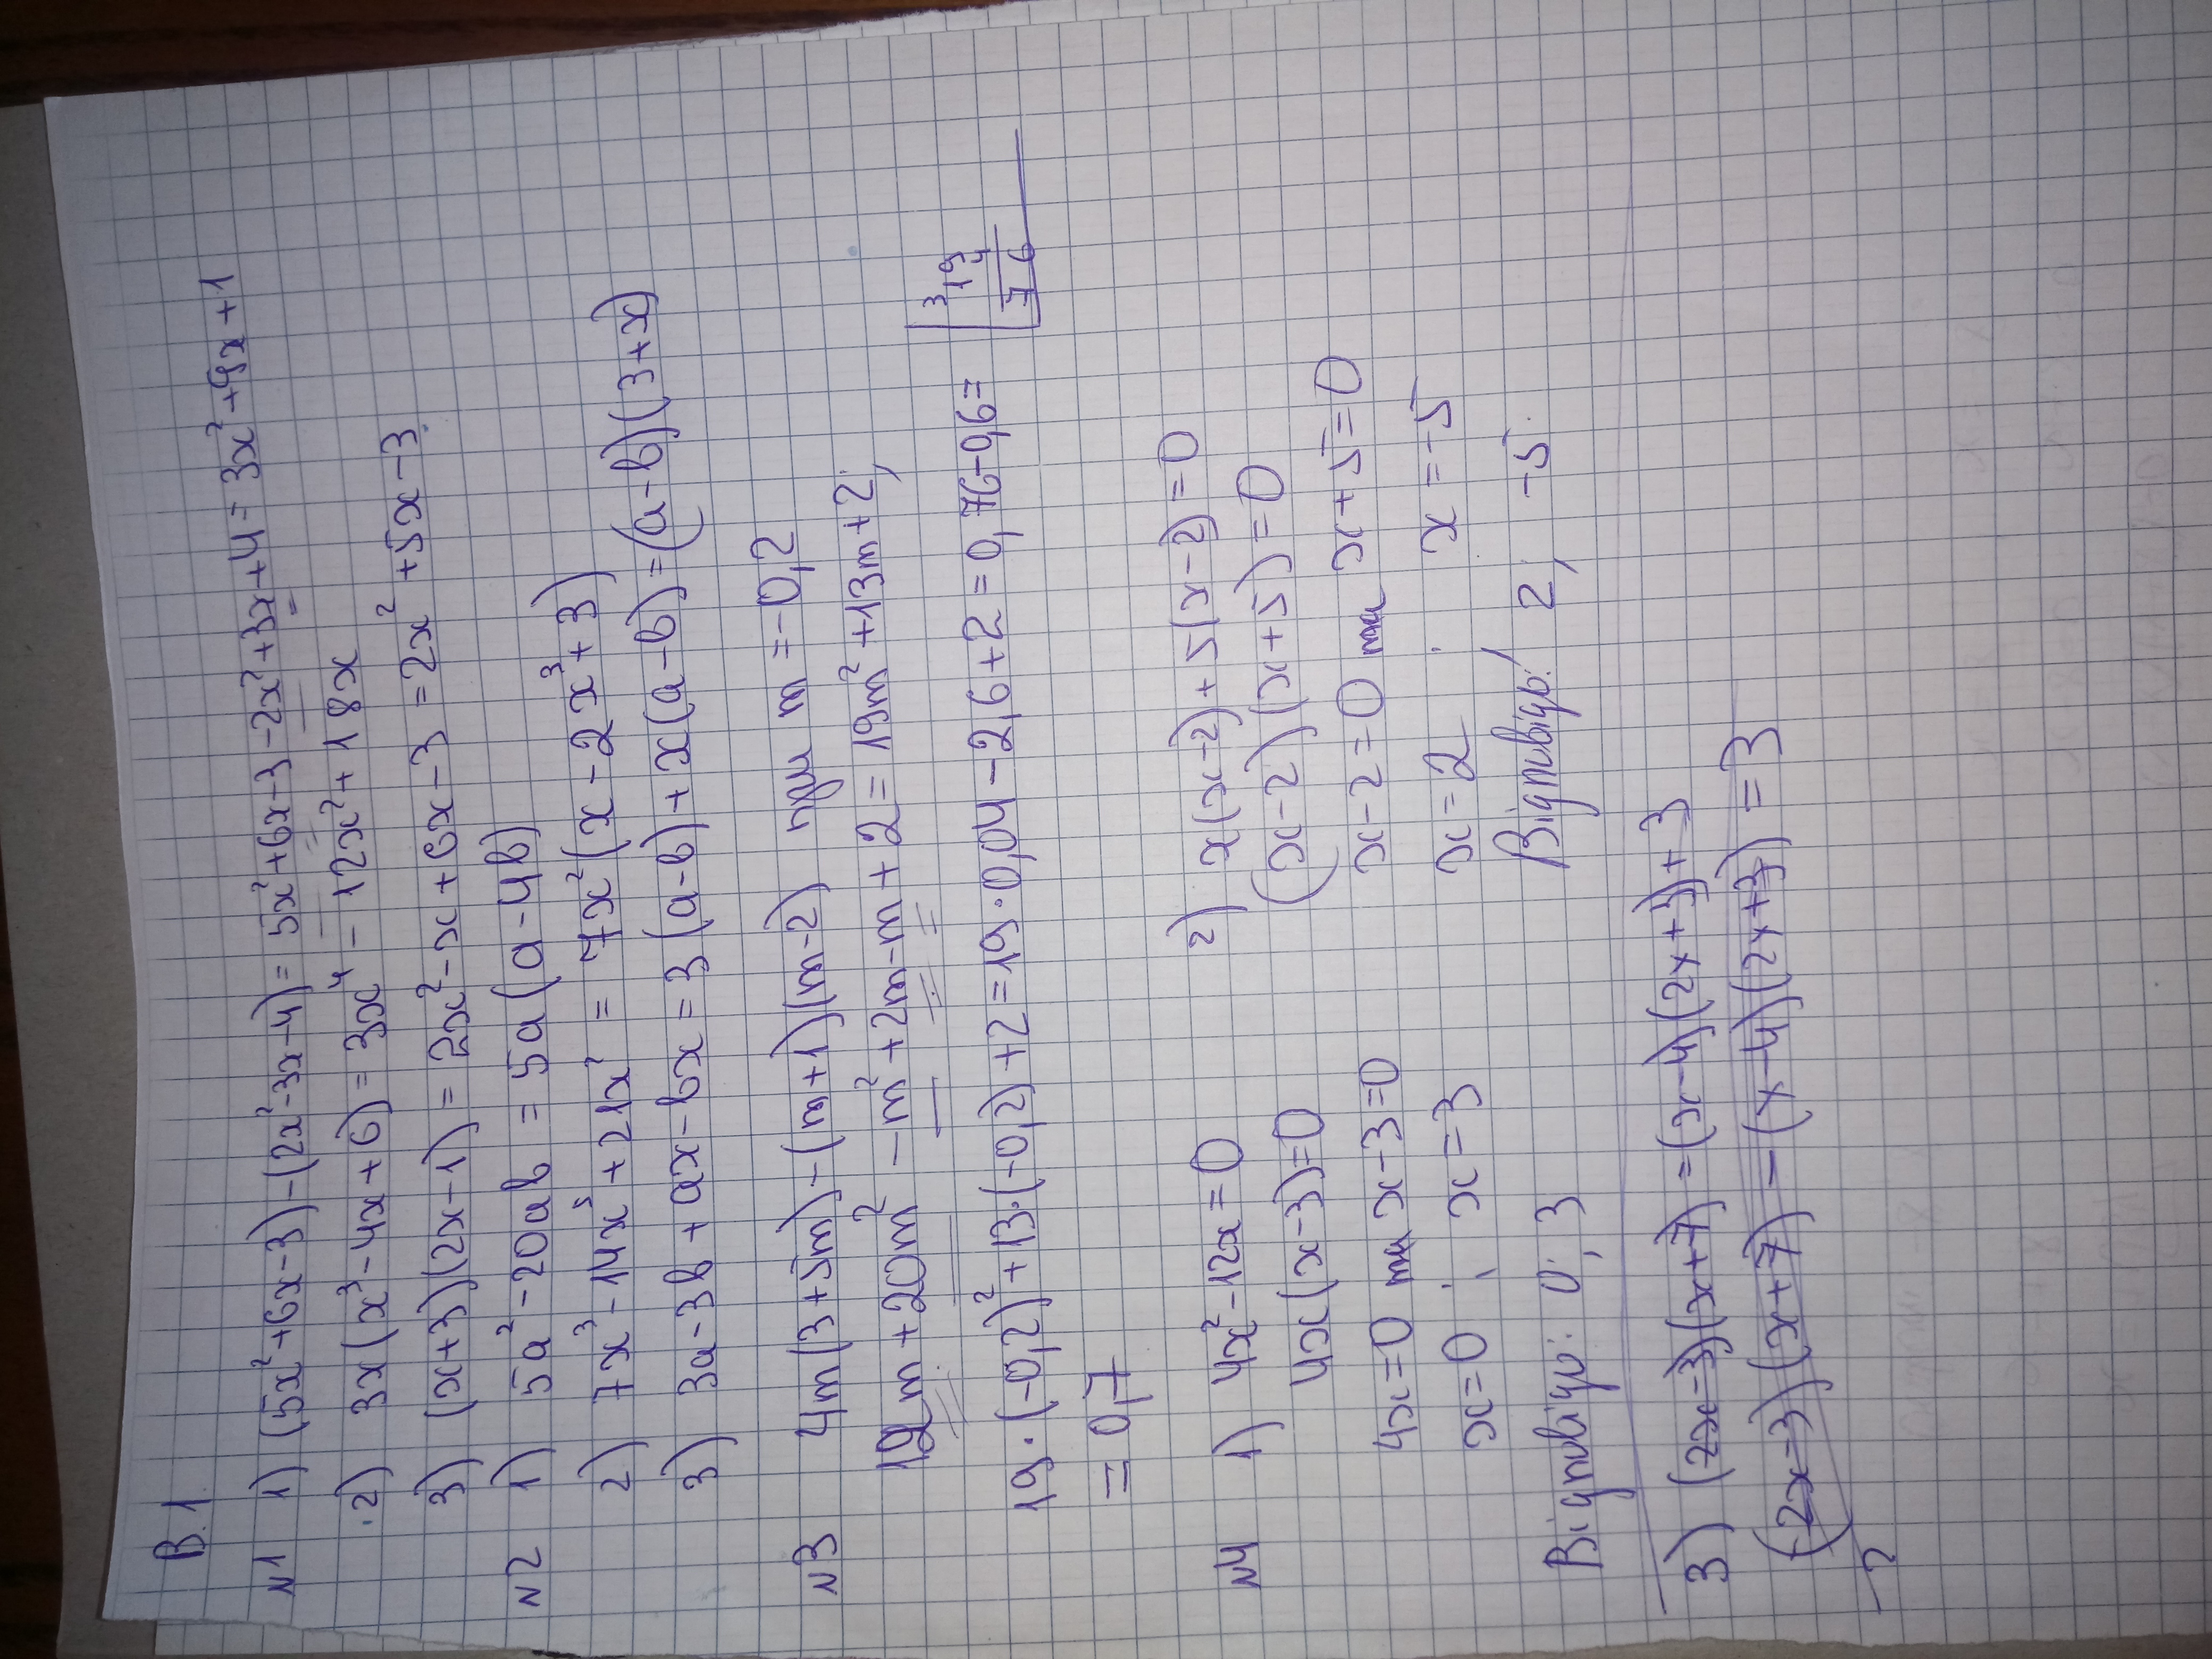 В. 1
№1 1) (5x²+6x-3)-(2x²-3x-4)= 5x²+6x-3-2x²+3x+4= 3x²+9x+1
2) 3x(x³-4x+6)= 3x⁴ - 12x²+18x
3) (x+3)(2x-1)= 2x²-x+6x-3 = 2x²+5x-3
№2 1) 5a²-20ab = 5a(a-4b)
2) 7x³-14x⁵+21x² = 7x²(x-2x³+3)
3) 3a-3b+ax-bx=3(a-b)+x(a-b)=(a-b)(3+x)
№3 4m(3+5m)-(m+1)(m-2) при m=-0,2
12m+20m² -m²+2m-m+2=19m²+13m+2;
19·(-0,2)²+13·(-0,2)+2=19·0,04-2,6+2=0,76-0,6=
= 0,7
³19
4
76
№4 1) 4x²-12x=0
4x(x-3)=0
4x=0 или x-3=0
x=0 ; x=3
Відповідь: 0; 3
2) x(x-2)+5(x-2)=0
(x-2)(x+5)=0
x-2=0 или x+5=0
x=2 ; x=-5
Відповідь: 2; -5.
3) (2x-3)(x+7)=(x-4)(2x+3)+3
(2x-3)(x+7)-(x-4)(2x+3)=3